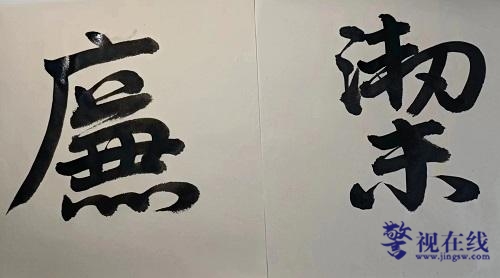 廉潔
警视在线
www.jingsw.com